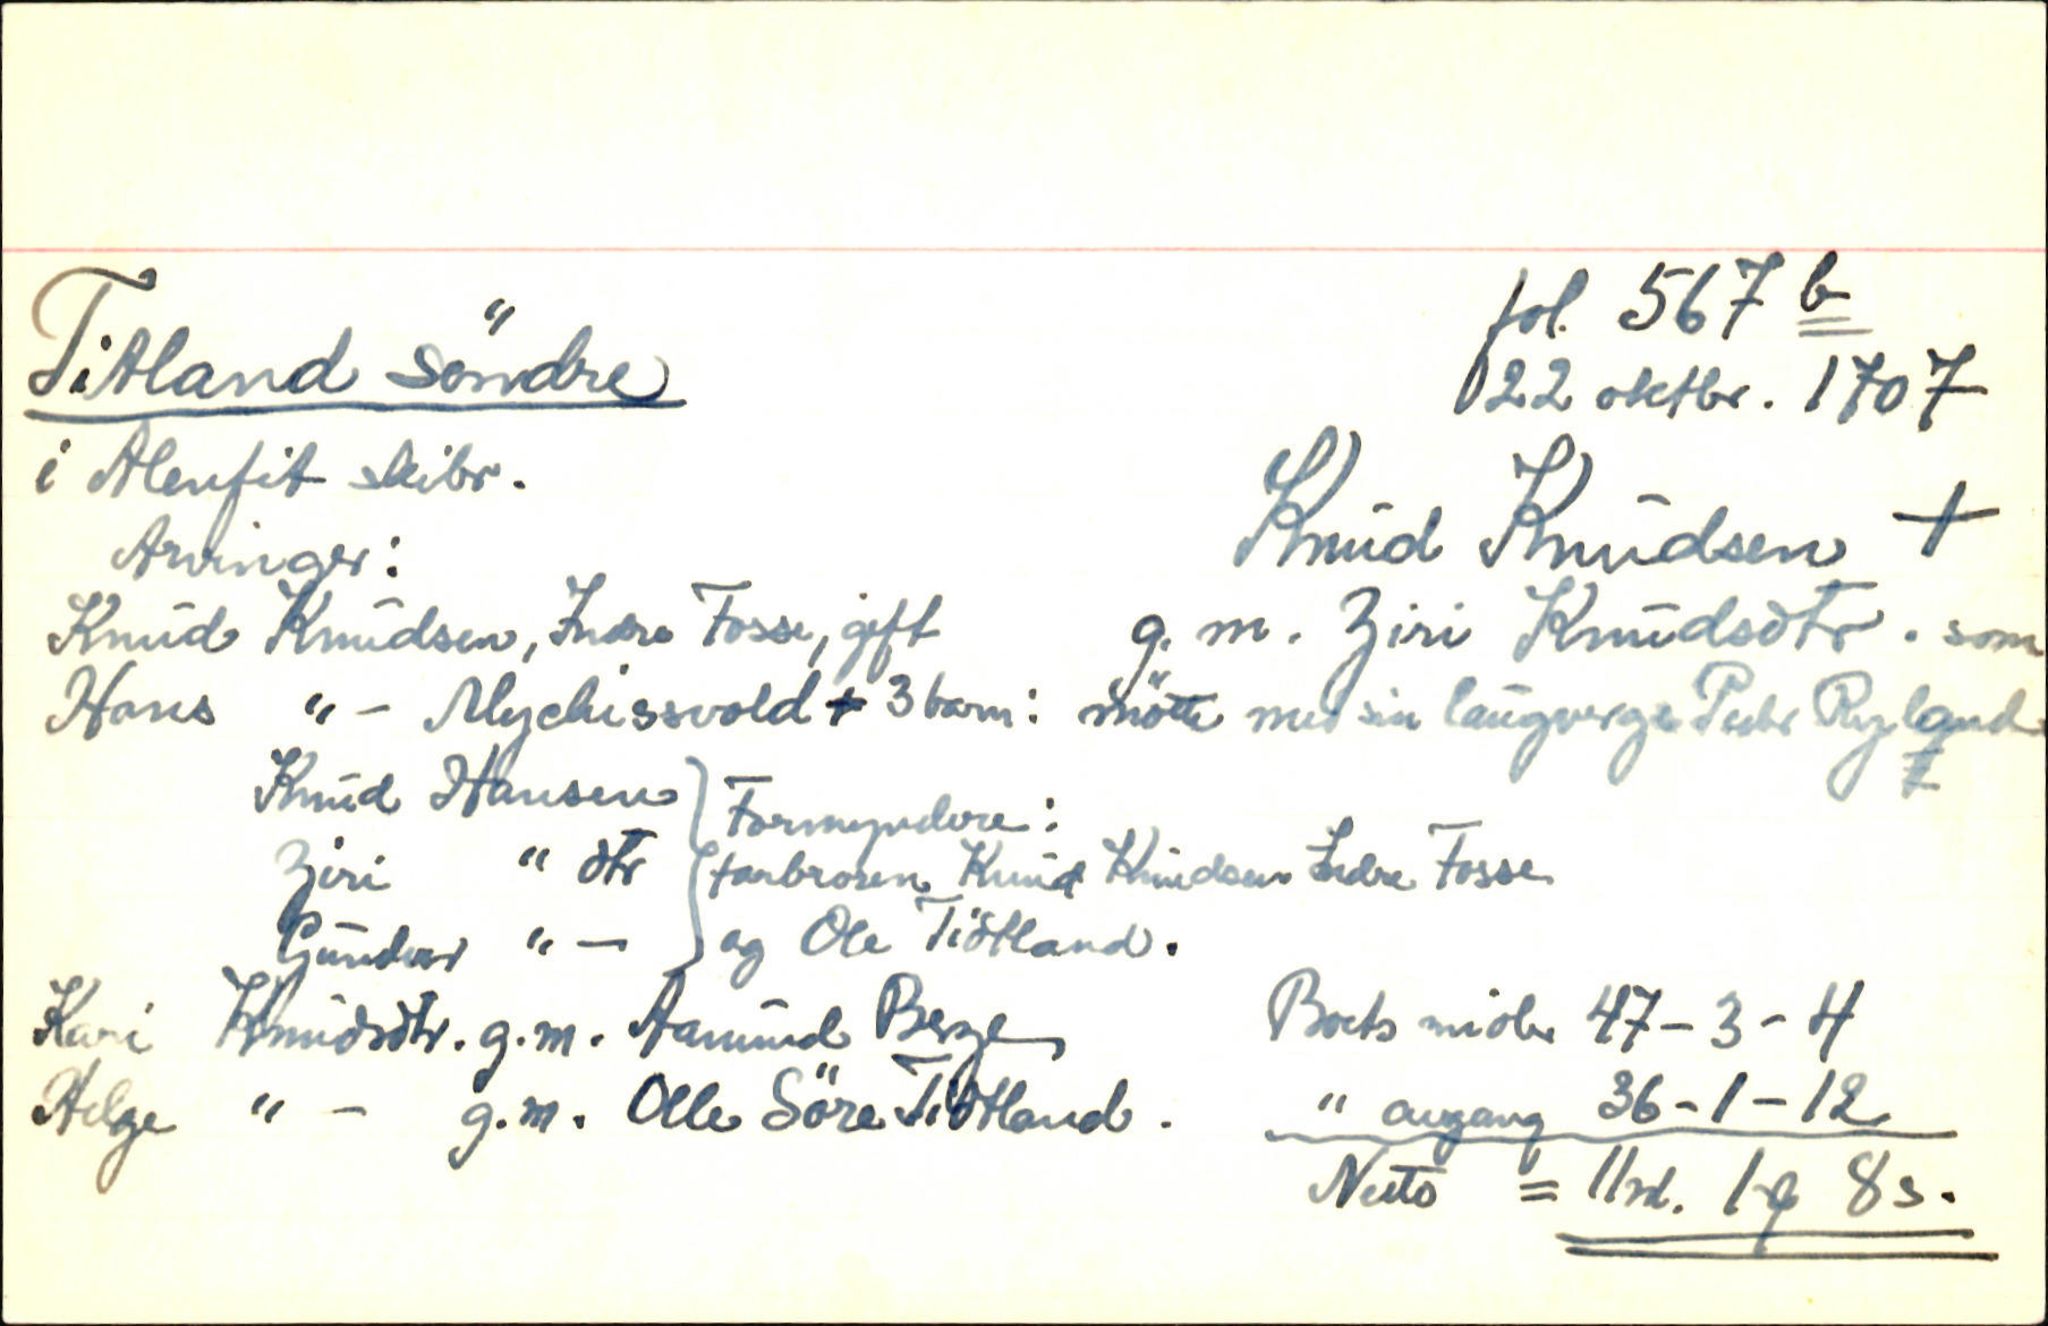 Titland söndre
fol. 567 b
22 oktbr. 1707
i Alenfit skibr.
Arvinger:
Knud Knudsen +
Knud Knudsen, Indre Fosse, gift
g. m. Ziri Knudsdtr. som
Hans " - Myckissvold + 3 barn:
mötte med sin laugverge Peder Ryland
Knud Hansen
Ziri " dtr
Gunder " -
Formyndere:
farbroren Knud Knudsen Indre Fosse
og Ole Tidtland.
Kari Knudsdtr. g.m. Aamund Berge
Helge " - g.m. Olle Söre Tidtland.
Boets midler 47 - 3 - 4
" augang 36 - 1 - 12
Netto = 11 rd. 1 8 s.